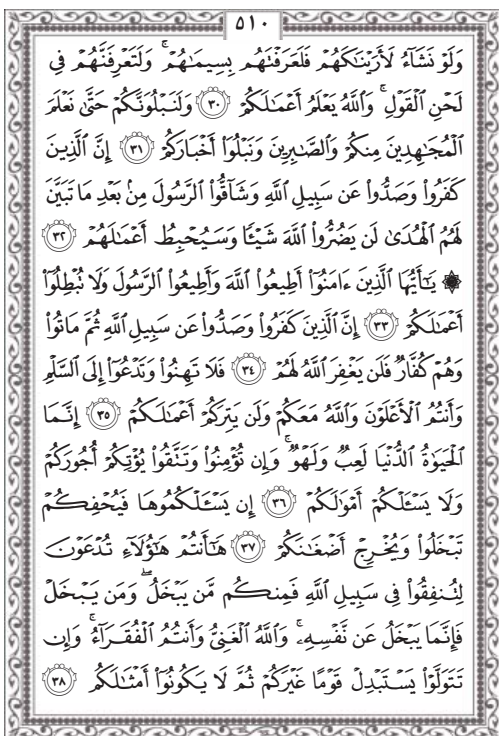 ٥١٠
وَلَوْ نَشَآءُ لَأَرَيْنَٰكَهُمْ فَلَعَرَفْتَهُم بِسِيمَٰهُمْ ۚ وَلَتَعْرِفَنَّهُمْ فِى
لَحْنِ ٱلْقَوْلِ ۚ وَٱللَّهُ يَعْلَمُ أَعْمَٰلَكُمْ ٣٠ وَلَنَبْلُوَنَّكُمْ حَتَّىٰ نَعْلَمَ
ٱلْمُجَٰهِدِينَ مِنكُمْ وَٱلصَّٰبِرِينَ وَنَبْلُوَا۟ أَخْبَارَكُمْ ٣١ إِنَّ ٱلَّذِينَ
كَفَرُوا۟ وَصَدُّوا۟ عَن سَبِيلِ ٱللَّهِ وَشَآقُّوا۟ ٱلرَّسُولَ مِنۢ بَعْدِ مَا تَبَيَّنَ
لَهُمُ ٱلْهُدَىٰ لَن يَضُرُّوا۟ ٱللَّهَ شَيْـًٔا وَسَيُحْبِطُ أَعْمَٰلَهُمْ ٣٢
۞ يَٰٓأَيُّهَا ٱلَّذِينَ ءَامَنُوٓا۟ أَطِيعُوا۟ ٱللَّهَ وَأَطِيعُوا۟ ٱلرَّسُولَ وَلَا تُبْطِلُوٓا۟
أَعْمَٰلَكُمْ ٣٣ إِنَّ ٱلَّذِينَ كَفَرُوا۟ وَصَدُّوا۟ عَن سَبِيلِ ٱللَّهِ ثُمَّ مَاتُوا۟
وَهُمْ كُفَّارٌ فَلَن يَغْفِرَ ٱللَّهُ لَهُمْ ٣٤ فَلَا تَهِنُوا۟ وَتَدْعُوٓا۟ إِلَى ٱلسَّلْمِ
وَأَنتُمُ ٱلْأَعْلَوْنَ وَٱللَّهُ مَعَكُمْ وَلَن يَتِرَكُمْ أَعْمَٰلَكُمْ ٣٥ إِنَّمَا
ٱلْحَيَوٰةُ ٱلدُّنْيَا لَعِبٌ وَلَهْوٌ ۚ وَإِن تُؤْمِنُوا۟ وَتَتَّقُوا۟ يُؤْتِكُمْ أُجُورَكُمْ
وَلَا يَسْـَٔلْكُمْ أَمْوَٰلَكُمْ ٣٦ إِن يَسْـَٔلْكُمُوهَا فَيُحْفِكُمْ
تَبْخَلُوا۟ وَيُخْرِجْ أَضْغَٰنَكُمْ ٣٧ هَٰٓأَنتُمْ هَٰٓؤُلَآءِ تُدْعَوْنَ
لِتُنفِقُوا۟ فِى سَبِيلِ ٱللَّهِ فَمِنكُم مَّن يَبْخَلُ ۖ وَمَن يَبْخَلْ
فَإِنَّمَا يَبْخَلُ عَن نَّفْسِهِۦ ۚ وَٱللَّهُ ٱلْغَنِىُّ وَأَنتُمُ ٱلْفُقَرَآءُ ۚ وَإِن
تَتَوَلَّوْا۟ يَسْتَبْدِلْ قَوْمًا غَيْرَكُمْ ثُمَّ لَا يَكُونُوٓا۟ أَمْثَٰلَكُم ٣٨